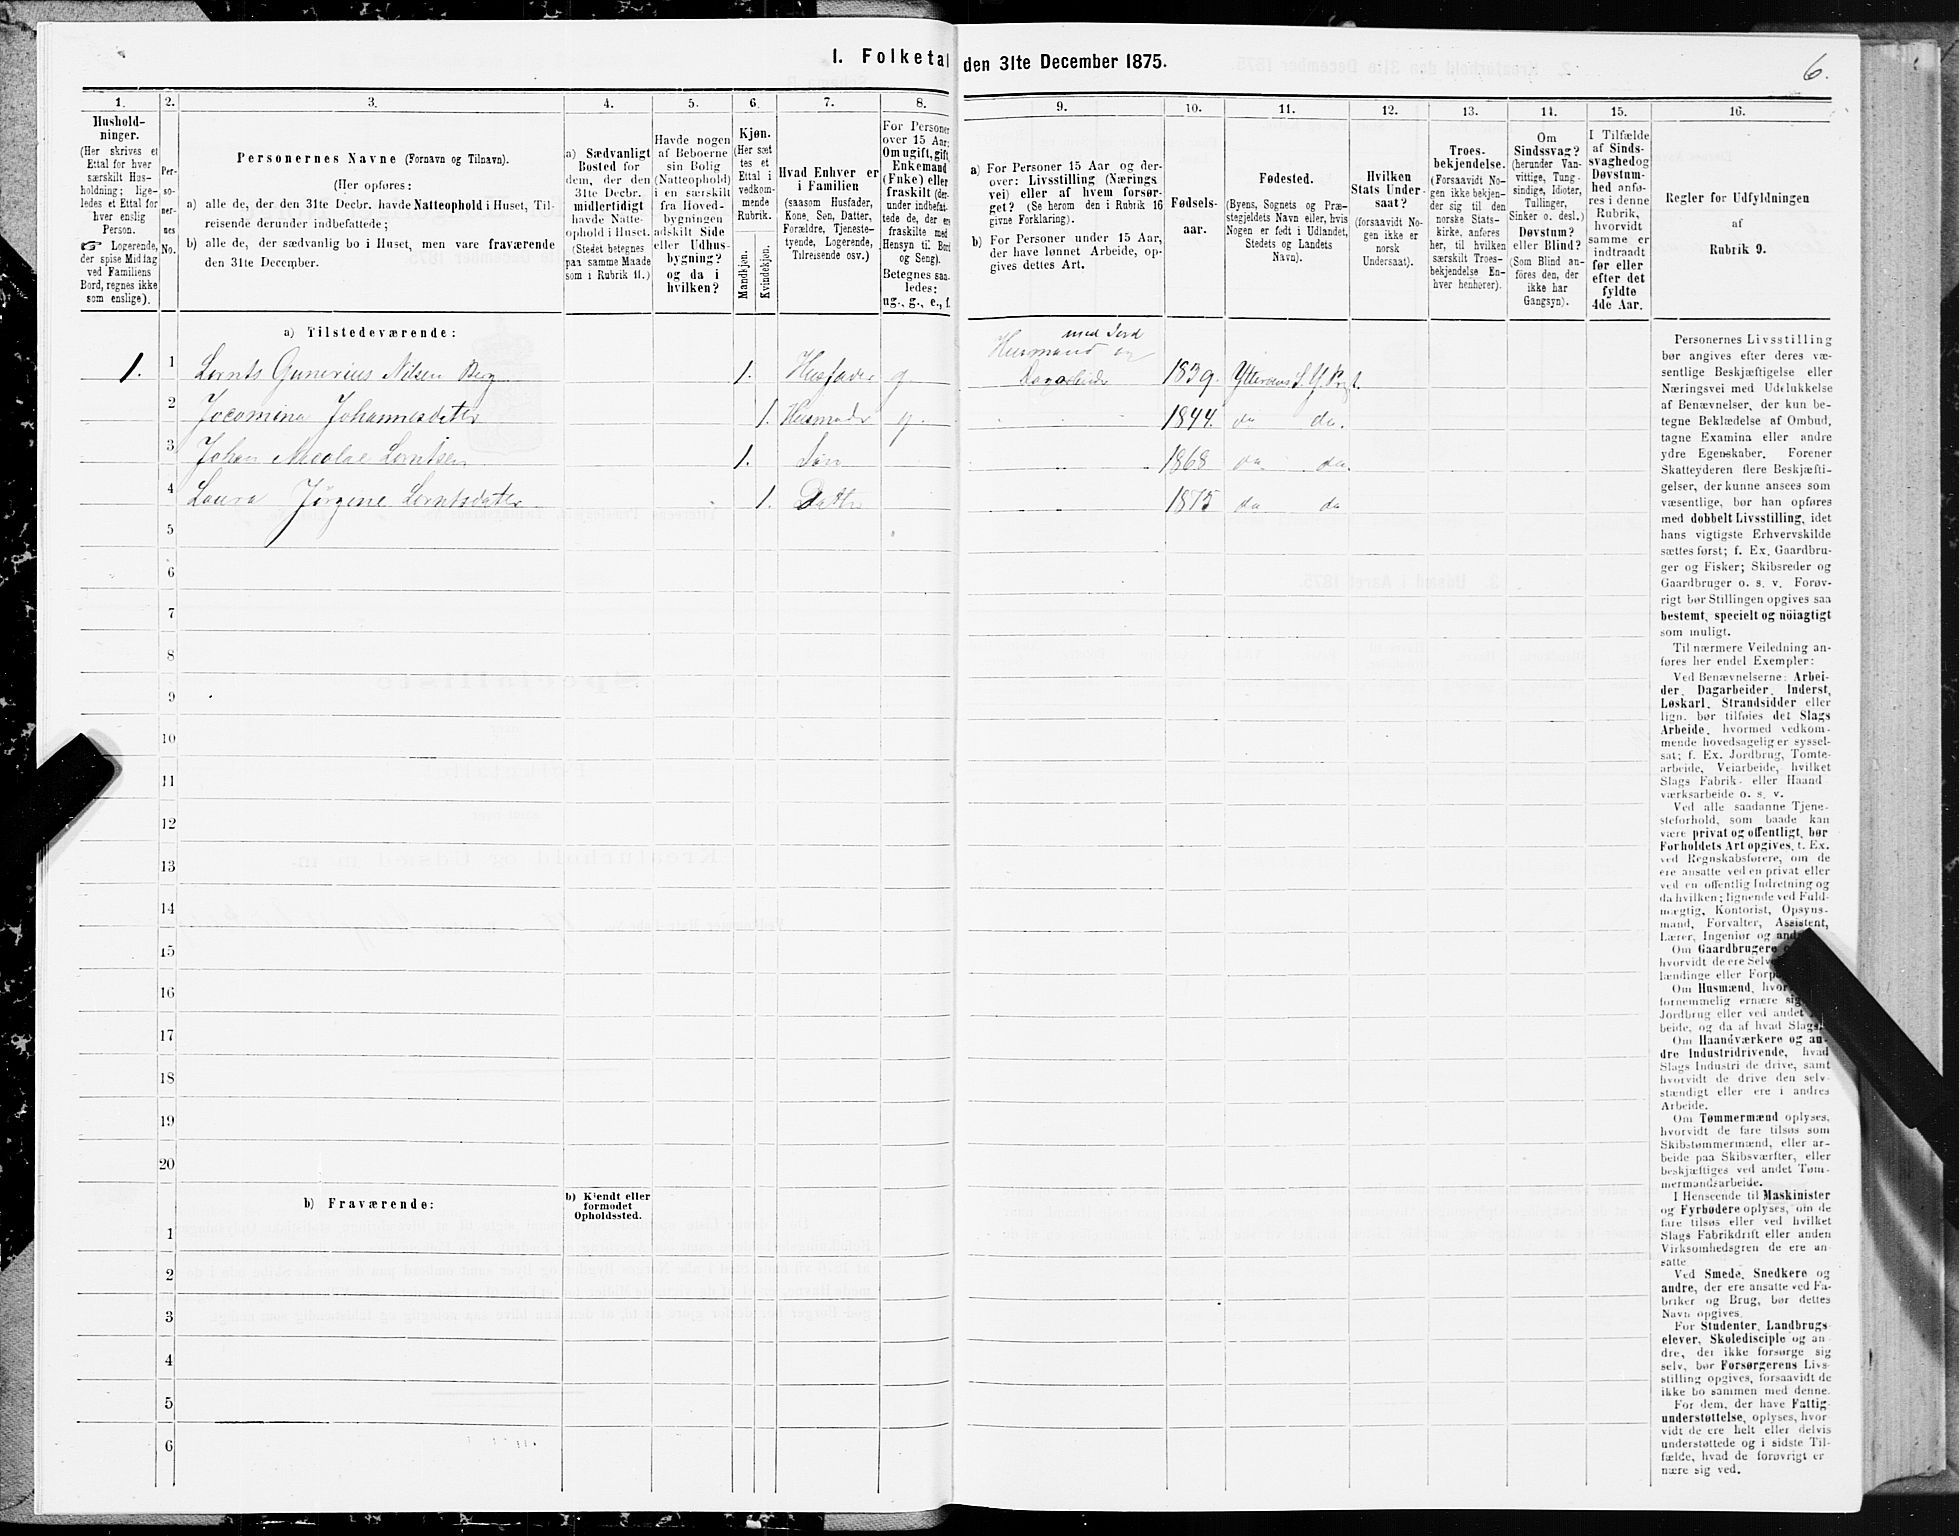 6.
I. Folketal den 31te December 1875.
1.
2.
3.
4.
5.
6.
7.
8.
9.
10.
11.
12.
13.
14.
15.
16.
Hushold-
ninger.
(Her skrives et
Ettal for hver
særskilt Hus-
holdning; lige-
ledes et Ettal for
hver enslig
Person.
☞ Logerende,
der spise Middag
ved Familiens
Bord, regnes ikke
som enslige).
Per-
so-
ner-
nes
No.
Personernes Navne (Fornavn og Tilnavn).
(Her opføres:
a) alle de, der den 31te Decbr. havde Natteophold i Huset, Til-
reisende derunder indbefattede;
b) alle de, der sædvanlig bo i Huset, men vare fraværende
den 31te December.
a) Sædvanligt
Bosted for
dem, der den
31te Decbr.
midlertidigt
havde Natte-
ophold i Huset.
(Stedet betegnes
paa samme Maade
som i Rubrik 11.)
Havde nogen
af Beboerne
sin Bolig
(Natteophold)
i en særskilt
fra Hoved-
bygningen
adskilt Side
eller Udhus-
bygning?
og da i
hvilken?
Kjøn.
(Her sæt
tes et
Ettal i
vedkom-
mende
Rubrik.
Mandkjøn.
Kvindekjøn.
Hvad Enhver er
i Familien
(saasom Husfader,
Kone, Søn, Datter,
Forældre, Tjeneste-
tyende, Logerende,
Tilreisende osv.)
For Personer
over 15 Aar:
Om ugift, gift,
Enkemand
(Enke) eller
fraskilt (der-
under indbefat-
tede de, der ere
fraskilte med
Hensyn til Bord
og Seng).
Betegnes saa-
ledes:
ug., g., e., f.
a) For Personer 15 Aar og der-
over: Livsstilling (Nærings
vei) eller af hvem forsør-
get? (Se herom den i Rubrik 16
givne Forklaring).
b) For Personer under 15 Aar,
der have lønnet Arbeide, op-
gives dettes Art.
Fødsels-
aar.
Fødested.
(Byens, Sognets og Præ-
stegjeldets Navn eller, hvis
Nogen er født i Udlandet,
Stedets og Landets
Navn).
Hvilken
Stats Under-
saat?
(forsaavidt No-
gen ikke er
norsk
Undersaat).
Troes-
bekjendelse.
(Forsaavidt No-
gen ikke bekjen-
der sig til den
norske Stats-
kirke, anføres
her, til hvilken
særskilt Troes-
bekjendelse En-
hver henhører).
Om
Sindssvag?
(herunder Van-
vittige, Tung-
sindige, Idioter,
Tullinger,
Sinker o. desl.)
Døvstum?
eller Blind?
(Som Blind an-
føres den, der
ikke har
Gangsyn).
I Tilfælde
af Sinds-
svaghed og
Døvstum-
hed anfø-
res i denne
Rubrik,
hvorvidt
samme er
indtraadt
før eller
efter det
fyldte
4de Aar.
Regler for Udfyldningen
af
Rubrik 9.
a) Tilstedeværende:
1. 1 Lornts Gunerius Nilsen Berg 1. Husfader g. Husmand med Jord og Dagarbeide 1839.
2 Jocomina Johannesdater 1. Husmoder g. 1844. do do.
3 Johan Nicolai Lorntsen 1. Søn 1868 do do.
4 Laura Jørgine Lorntsdater 1. Datter 1875 do do
5
6
7
8
9
10
11
12
13
14
15
16
17
18
19
20
b) Fraværende:
b) Kjendt eller
formodet
Opholdssted.
1
2
3
4
5
6
Personernes Livsstilling
bør angives efter deres væ-
sentlige Beskjæftigelse eller
Næringsvei med Udelukkelse
af Benævnelser, der kun be-
tegne Beklædelse af Ombud,
tagne Examina eller andre
ydre Egenskaber. Forener
Skatteyderen flere Beskjæfti-
gelser, der kunne ansees som
væsentlige, bør han opføres
med dobbelt Livsstilling, idet
hans vigtigste Erhvervskilde
sættes først; f. Ex. Gaardbru-
ger og Fisker; Skibsreder og
Gaardbruger o. s. v. Forøv-
rigt bør Stillingen opgives saa
bestemt, specielt og nöiagtigt
som muligt.
Til nærmere Veiledning an-
føres her endel Exempler:
Ved Benævnelserne: Arbei-
der, Dagarbeider, Inderst,
Løskarl, Strandsidder eller
lign. bør tilføies det Slags
Arbeide, hvormed vedkom-
mende hovedsagelig er syssel-
sat; f. Ex. Jordbrug, Tomte-
arbeide, Veiarbeide, hvilket
Slags Fabrik- eller Haand
værksarbeide o. s. v.
Ved alle saadanne Tjene-
steforhold, som baade kan
være privat og offentligt, bør
Forholdets Art opgives, f. Ex.
ved Regnskabsførere, om de
ere ansatte ved en privat eller
ved en offentlig Indretning og
da hvilken; lignende ved Fuld-
mægtig, Kontorist, Opsyns-
mand, Forvalter, Assistent,
Lærer, Ingeniør og
Om Gaardbrugere
hvorvidt de ere
lændinge eller
Om Husmænd,
fornemmelig ernære
Jordbrug eller ved andet
beide, og da af hvad Slags.
Om Haandværkere og an-
dre Industridrivende, hvad
Slags Industri de drive, samt
hvorvidt de drive den selv-
stændigt eller ere i andres
Arbeide.
Om Tømmermænd oplyses,
hvorvidt de fare tilsøs som
Skibstømmermænd, eller ar-
beide paa Skibsværfter, eller
beskjæftiges ved andet Tøm-
mermandsarbeide.
I Henseende til Maskinister
og Fyrbødere oplyses, om de
fare tilsøs eller ved hvilket
Slags Fabrikdrift eller anden
Virksomhedsgren de ere an-
satte
Ved Smede, Snedkere og
andre, der ere ansatte ved Fa-
briker og Brug, bør dettes
Navn opgives.
For Studenter, Landbrugs-
elever, Skoledisciple og an-
dre, der ikke forsørge sig
selv, bør Forsørgerens Livs-
stilling opgives, forsaavidt de
ikke bo sammen med denne.
For dem, der have Fattig-
understøttelse, oplyses, hvor-
vidt de ere helt eller delvis
understøttede og i sidste Til-
fælde, hvad de forøvrigt er-
nære sig ved.